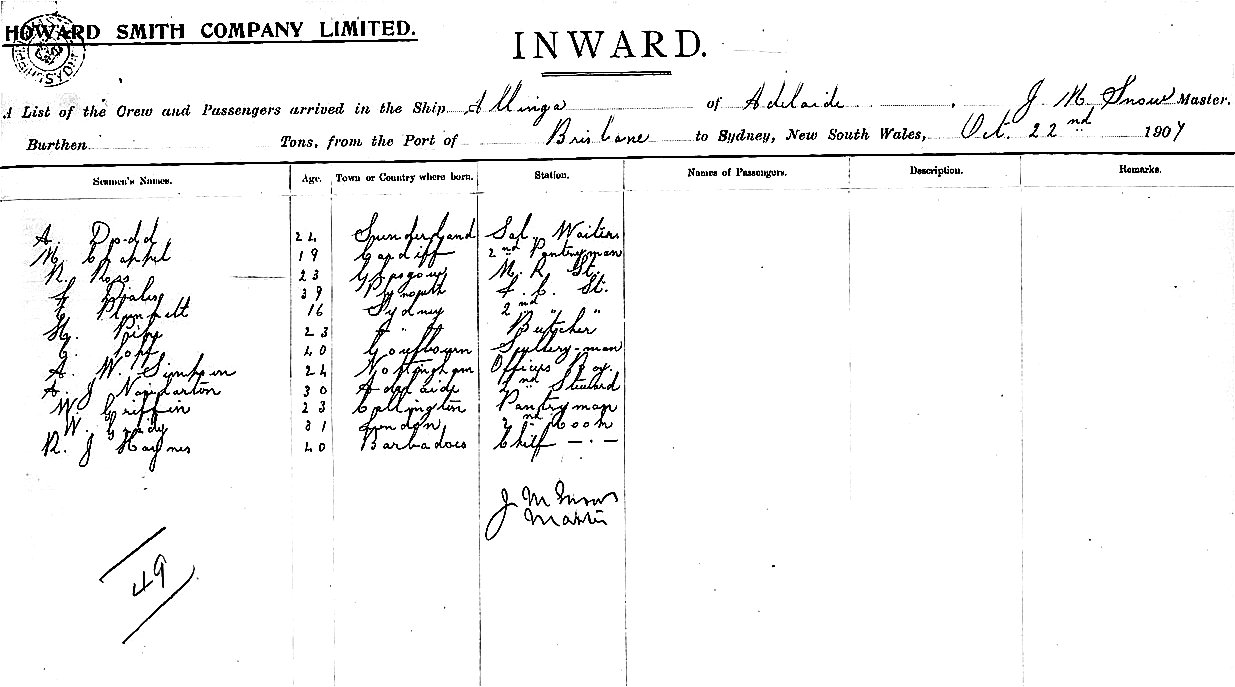 HOWARD SMITH COMPANY LIMITED.
INWARD.
A List of the Crew and Passengers arrived in the Ship Allinga of Adelaide, J. M. Snow Master.
Burthen Tons, from the Port of Brisbane to Sydney, New South Wales, Oct. 22nd 1907
Seamen's Names. Age. Town or Country where born. Station. Names of Passengers. Description. Remarks.
A. Dodd 24 Sunderland Sal. Waiter.
M. Chappel 19 Cardiff 2nd Pantryman
R. Ross 23 Glasgow M. R. St.
39 Plymouth F. C. St.
Plunkett 16 Sydney 2nd " "
Hy. 23 " Butcher
40 Goulbourn
A. W. Simpson 24 Nottingham Officers Boy.
A. J. 30 Adelaide 2nd Steward
W. Griffin 23 Callington Pantryman
W. 31 London 2nd Cook
R. J. Haynes 40 Barbadoes Chief — · —
J M Snow
Master
49